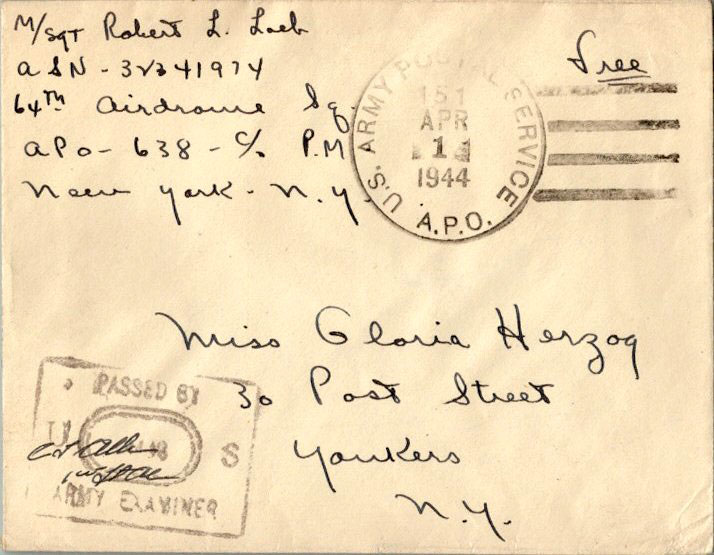 M/Sgt Robert L. Loeb
ASN - 32341974
64TH Airdrome Sq.
APO - 638 - C/o P.M.
New York - N.Y.
U.S. ARMY POSTAL SERVICE
151
APR
1
1944
A.P.O.
Free
Miss Gloria Herzog
30 Post Street
Yonkers
N.Y.
PASSED BY
U S
ARMY EXAMINER